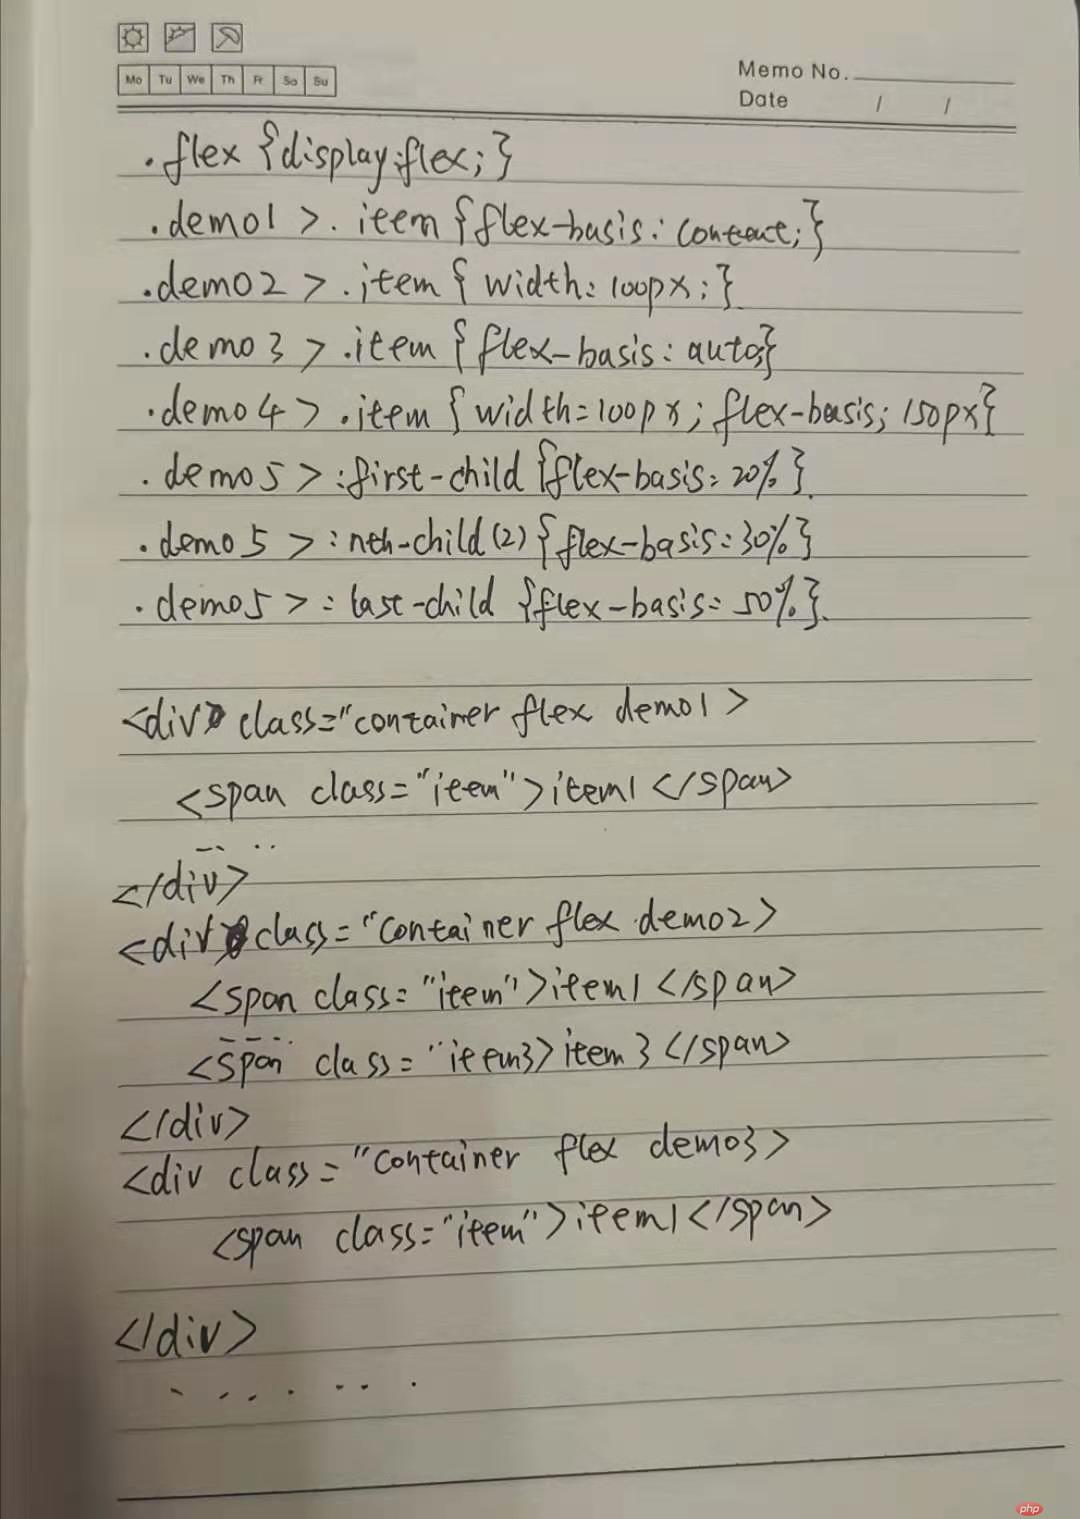 Mo Tu We Th Fr Sa Su
Memo No.
Date / /
.flex {display:flex;}
.demo1 > .item {flex-basis: content;}
.demo2 > .item { width: 100px;}
.demo3 > .item { flex-basis: auto;}
.demo4 > .item { width=100px; flex-basis; 150px}
.demo5 > :first-child {flex-basis: 20%}
.demo5 > :nth-child(2) {flex-basis: 30%}
.demo5 > : last-child {flex-basis: 50%}
<div class="container flex demo1 >
<span class="item">item1 </span>
......
</div>
<div class="container flex demo2>
<span class="item">item1 </span>
......
<span class="item3>item3 </span>
</div>
<div class="container flex demo3>
<span class="item">item1</span>
</div>
.......
php